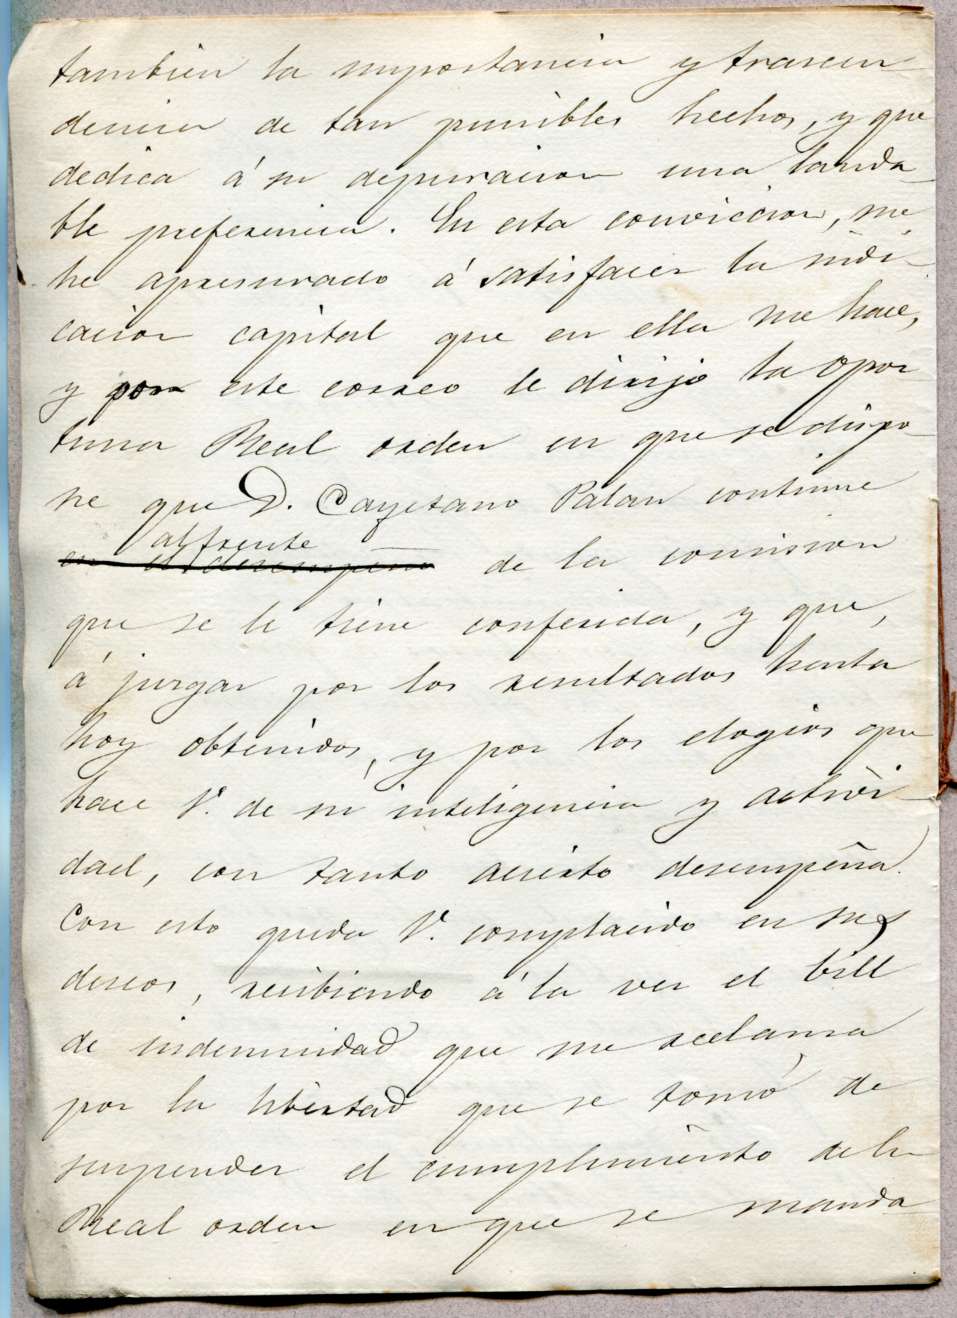 tambien la importancia y trascen
dencia de tan punibles hechos, y que
dedica á su depuracion una lauda-
ble preferencia. En esta conviccion, me
he apresurado á satisfacer la indi-
cacion capital que en ella me hace,
y por este correo le dirijo la opor
tuna Real orden en que se dispo-
ne que D. Cayetano Palau continue
al frente
en el desempeño de la comision
que se le tiene conferida, y que,
á juzgar por los resultados hasta
hoy obtenidos, y por los elogios que
hace V. de su inteligencia y activi
dad, con tanto acierto desempeña.
Con esto queda V. complacido en sus
deseos, recibiendo á la vez el bill
de indemnidad que me reclama
por la libertad que se tomó de
suspender el cumplimiento de la
Real orden en que se manda